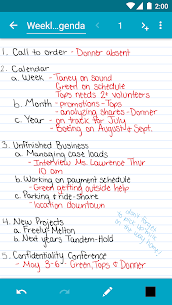 2:00
Weekl...genda
1
1. Call to order - Donner absent
2. Calendar
a. Week - Taney on sound
Greed on schedule
Tops needs 2+ volunteers
b. Month - promotions - Tops
- analyzing shares - Donner
c. Year - on track for July
- Boeing on August + Sept.
3. Unfinished Business
a. Managing case loads
- Interview Ms. Lawrence Thur
10 am
b. Working on payment schedule
- Greed getting outside help
c. Parking + ride-share
- location downtown
4. New Projects
a. Freeful Melton
b. Next years Tandem-Hold
5. Confidentiality Conference
- May 3-6 Green, Tops + Donner